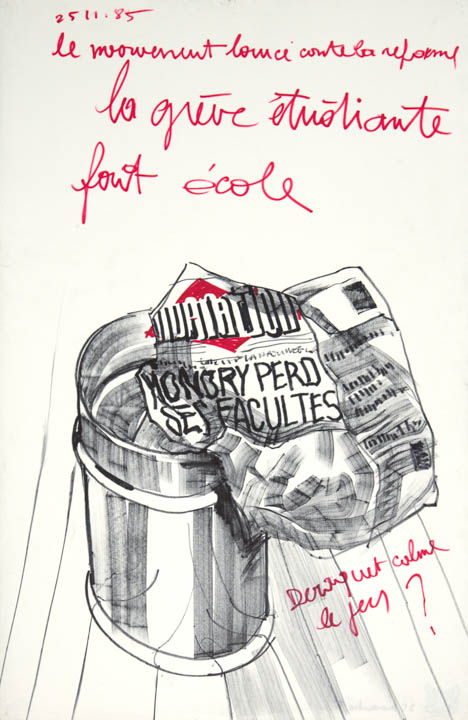 25.11.85
le mouvement lancé contre la réforme
la grève étudiante
fait école
MONORY PERD
SES FACULTES
Devaquet calme
le jeu ?